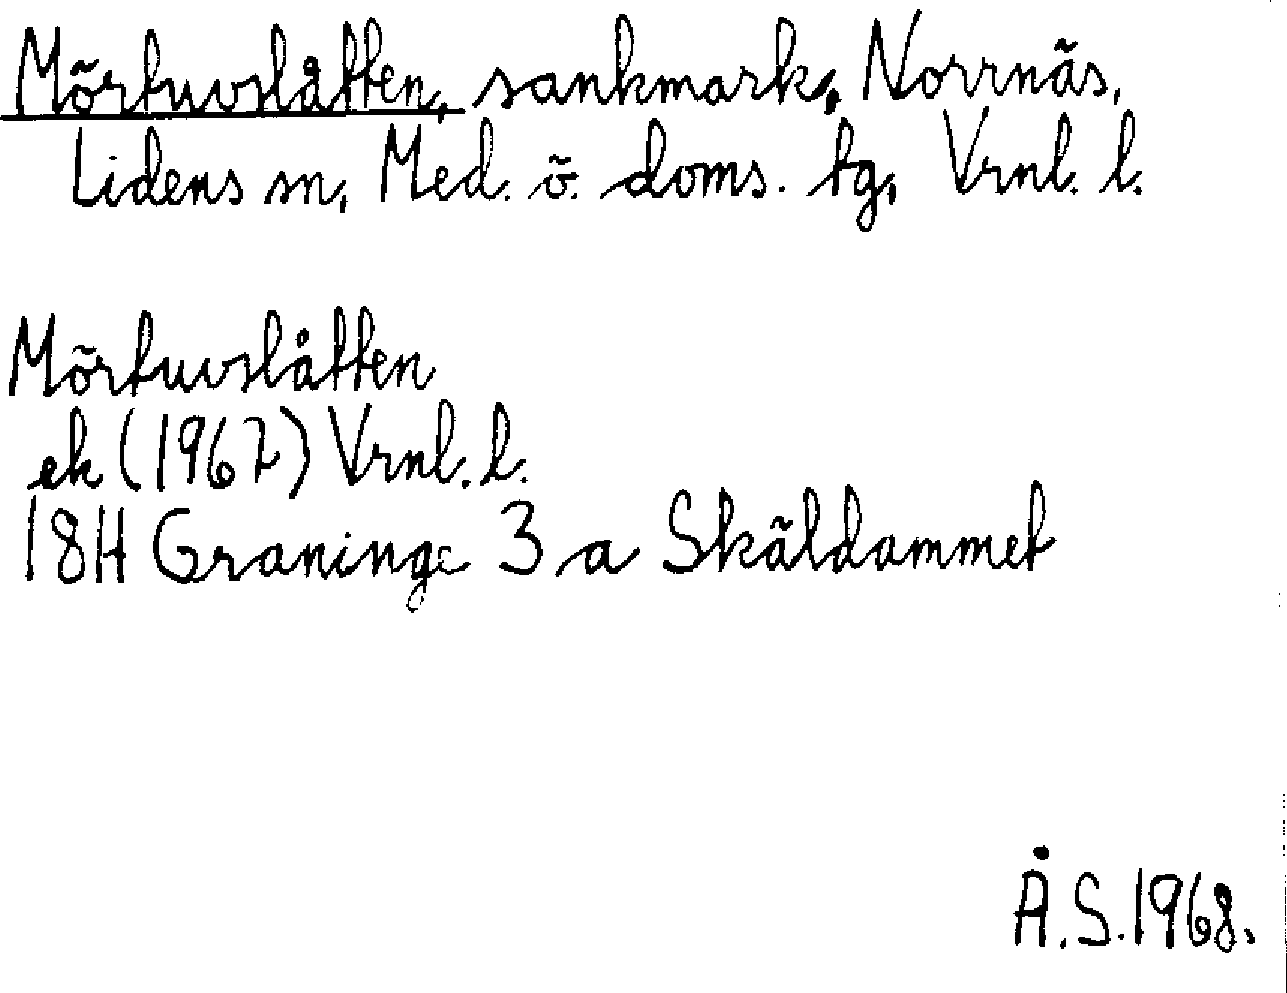 Mörtuvslåtten, sankmark, Norrnäs,
Lidens sn, Med. ö. doms. tg, Vrnl. l.
Mörtuvslåtten
ek (1967) Vrnl. l.
18H Graninge 3 a Skäldammet
Å.S. 1968.